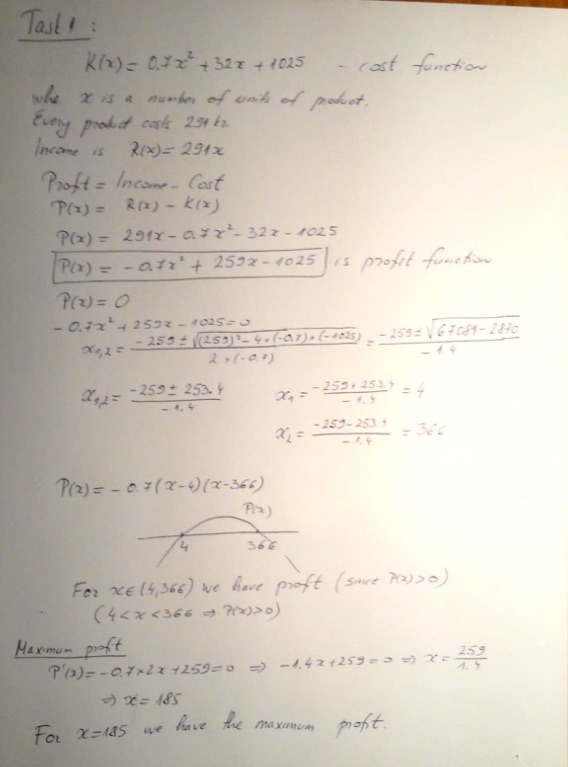 Task 1:
K(x) = 0.7x² + 32x + 1025 - cost function
whe x is a number of units of product.
Every product costs 291 kr.
Income is R(x) = 291x
Profit = Income - Cost
P(x) = R(x) - K(x)
P(x) = 291x - 0.7x² - 32x - 1025
P(x) = -0.7x² + 259x - 1025 is profit function
P(x) = 0
-0.7x² + 259x - 1025 = 0
x₁,₂ = (-259 ± √((259)² - 4×(-0.7)×(-1025))) / (2×(-0.7)) = (-259 ± √(67081 - 2870)) / (-1.4)
x₁,₂ = (-259 ± 253.4) / (-1.4) x₁ = (-259 + 253.4) / (-1.4) = 4
x₂ = (-259 - 253.4) / (-1.4) = 366
P(x) = -0.7(x-4)(x-366)
P(x)
4 366
For x∈(4,366) we have profit (since P(x)>0)
(4<x<366 ⇒ P(x)>0)
Maximum profit
P'(x) = -0.7×2x + 259 = 0 ⇒ -1.4x + 259 = 0 ⇒ x = 259/1.4
⇒ x = 185
For x = 185 we have the maximum profit.